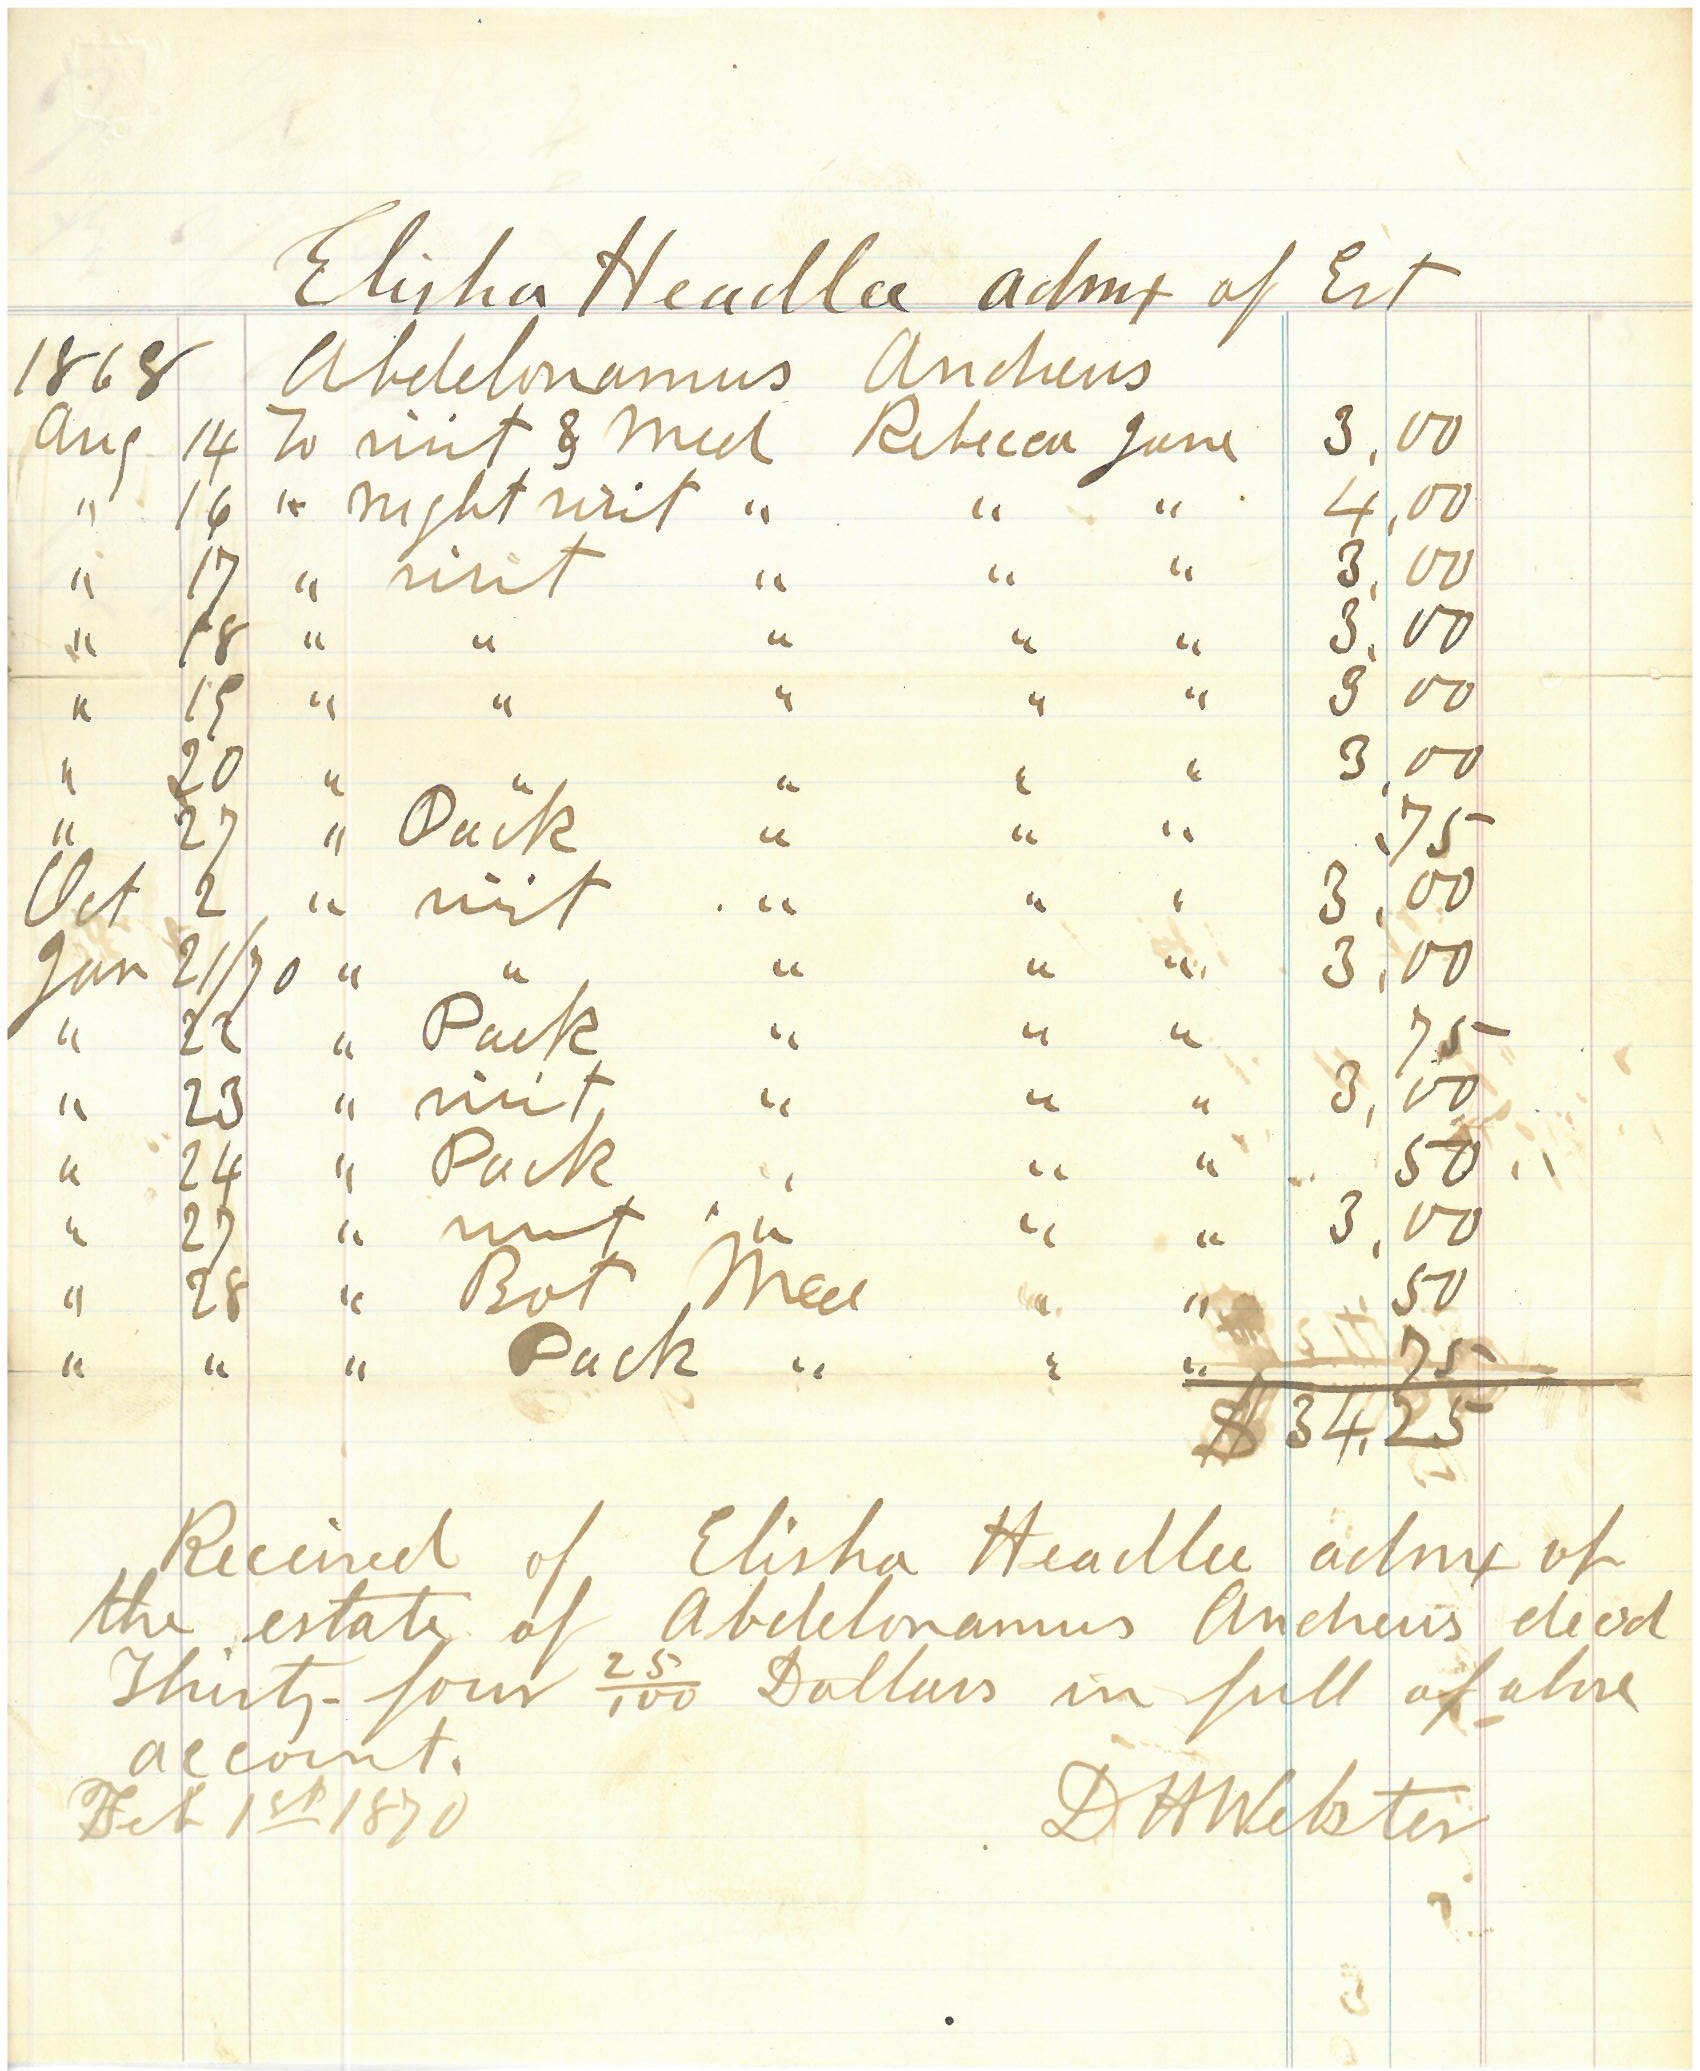 Elisha Headlee admx of Est
1868 Abdelonamus Andrews
Aug 14 To visit & Med Rebecca Jane 3,00
" 16 " night visit " " " 4,00
" 17 " visit " " " 3,00
" 18 " " " " " 3,00
" 19 " " " " " 3 00
" 20 " " " " " 3,00
" 27 " Pack " " " ,75
Oct 2 " visit " " " 3,00
Jan 21/70 " " " " " 3,00
" 22 " Pack " " " 75
" 23 " visit " " " 3,00
" 24 " Pack " " " 50
" 27 " visit " " " 3,00
" 28 " Bot Med " " 50
" " " Pack " " " 75
$ 34,25
Received of Elisha Headlee admx of
the estate of Abdelonamus Andrews decd
Thirty-four 25/100 Dollars in full of above
account.
Feb 1st 1870 D H Webster